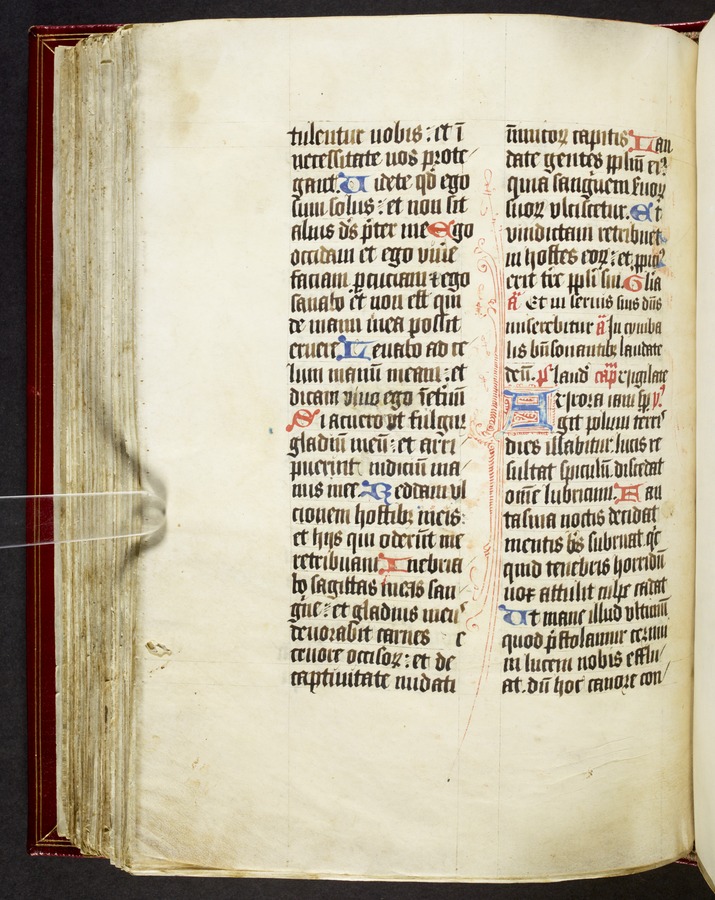 tulentur uobis : et ī
necessitate uos prote
gant. Uidete qd ego
sum solus : et non sit
alius ds pter me Ego
occidam et ego viue
faciam pcuciam et ego
sanabo et non est qui
de manu mea possit
eruere. Leuabo ad ce
lum manū meam : et
dicam viuo ego
Si acuero vt fulgur
gladiū meū : et arri
puerit iudiciū ma
nus mee. Reddam vl
cionem hostibz meis :
et hijs qui oderūt me
retribuam. Inebria
bo sagittas meas san
gūe : et gladius meus
deuorabit carnes e
cruore occisoꝝ : et de
captiuitate nudati
inimicoꝝ capitis Lau
date gentes pplm ei9
quia sanguem suoꝝ
suoꝝ vlciscetur. Et
vindictam retribuet
in hostes eoꝝ : et
erit tre ppli sui. Glia
a Et in seruis suis dns
miserebitur a In cymba
lis bn sonantibz laudate
deū. ps laud cap vigilate
Aurora iam sp
git polum terris
dies illabitur. lucis re
sultat spiculū. discedat
omē lubricum. Fan
tasma noctis decidat
mentis subruat qc
quid tenebris horridū
nox attulit culpe cadat
Ut mane illud vltimū
quod pstolamur cernui
in lucem nobis efflu
at. dū hoc canore con